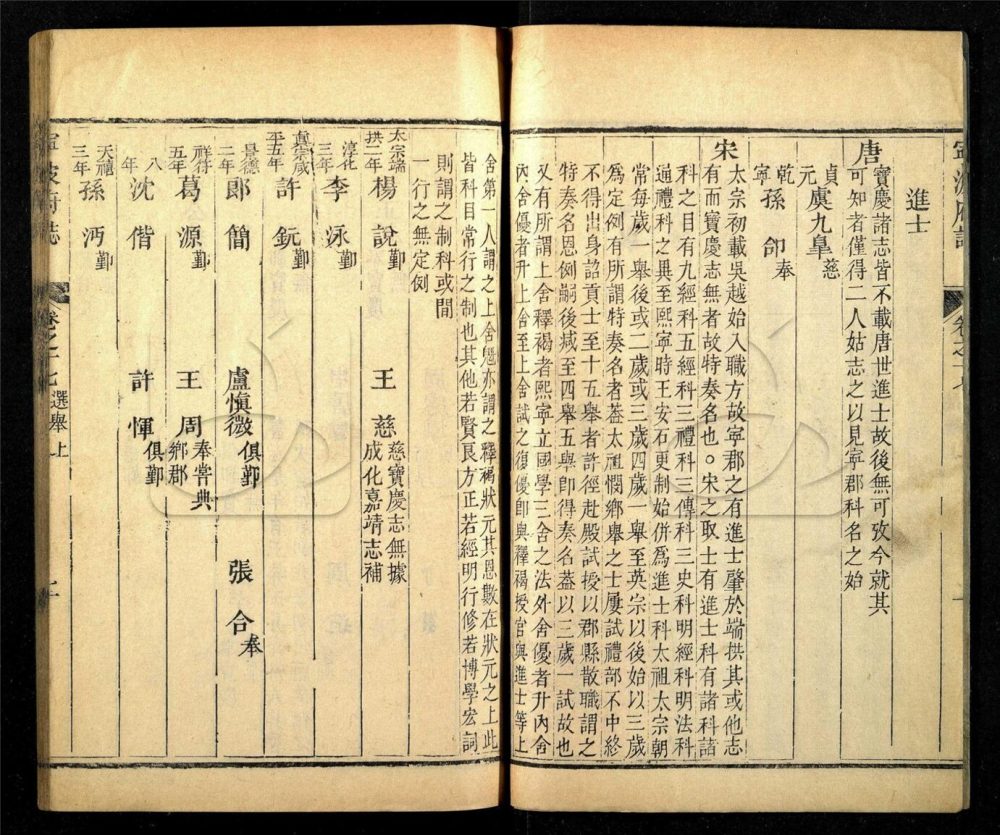 進士
唐
寶慶諸志皆不載唐世進士故後無可攷今就其
可知者僅得二人姑志之以見寧郡科名之始
貞元
虞九臯慈
乾寧
孫郃奉
宋
太宗初載吳越始入職方故寧郡之有進士肇於端拱其或他志
有而寶慶志無者故特奏名也○宋之取士有進士科有諸科諸
科之目有九經科五經科三禮科三傳科三史科明經科明法科
通禮科之異至熙寧時王安石更制始併為進士科太祖太宗朝
常每歲一舉後或二歲或三歲或四歲一舉至英宗以後始以三歲
為定例有所謂特奏名者蓋太祖憫鄉舉之士屢試禮部不中終
不得出身詔貢士至十五舉者許徑赴殿試授以郡縣散職謂之
特奏名恩例嗣後減至四舉五舉即得奏名蓋以三歲一試故也
又有所謂上舍釋褐者熙寧立國學三舍之法外舍優者升內舍
內舍優者升上舍至上舍試之復優即與釋褐授官與進士等上
舍第一人謂之上舍魁亦謂之釋褐狀元其恩數在狀元之上此
皆科目常行之制也其他若賢良方正若經明行修若博學宏詞
則謂之制科或間
一行之無定例
太宗端拱二年
楊說鄞
王慈慈寶慶志無據成化嘉靖志補
淳化三年
李泳鄞
真宗咸平五年
許鈗鄞
景德二年
郎簡
盧慎微俱鄞
張合奉
祥符五年
葛源鄞
王周奉嘗典鄉郡
八年
沈偕
許惲俱鄞
天禧三年
孫沔鄞
寧波府誌
卷之十七
選舉上
一